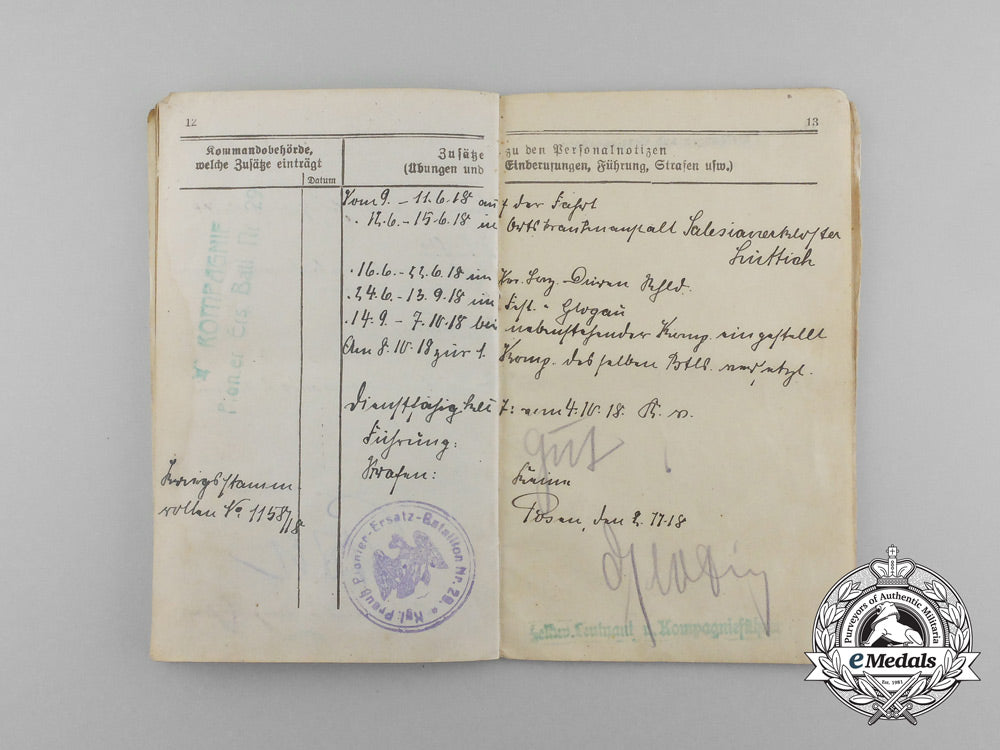 12
13
Kommandobehörde,
welche Zusätze einträgt
Datum
Zusätze zu den Personalnotizen
(Übungen und Einberufungen, Führung, Strafen usw.)
Vom 9. – 11.6.18 auf der Fahrt
" 12.6. – 15.6.18 in Ortskrankenanstalt Salesianerkloster
Lüttich
" 16.6. – 22.6.18 im Düren
" 24.6. – 13.9.18 im Fest. " Glogau
" 14.9. – 7.10.18 bei nebenstehender Komp. eingestellt
Am 8.10.18 zur 1. Komp. desselben Batls. versetzt.
Dienstfähigkeit: vom 4.10.18. K. v.
Führung: gut
Strafen: Keine
Kriegsstamm-
rollen No. 1158/18
Posen, den 2.11.18
Kgl. Preuß. Pionier-Ersatz-Bataillon Nr. 29
Leutnant u. Kompagnieführer
KOMPAGNIE
Pionier Ers. Batl. Nr. 29
Purveyors of Authentic Militaria
eMedals
Est. 1981